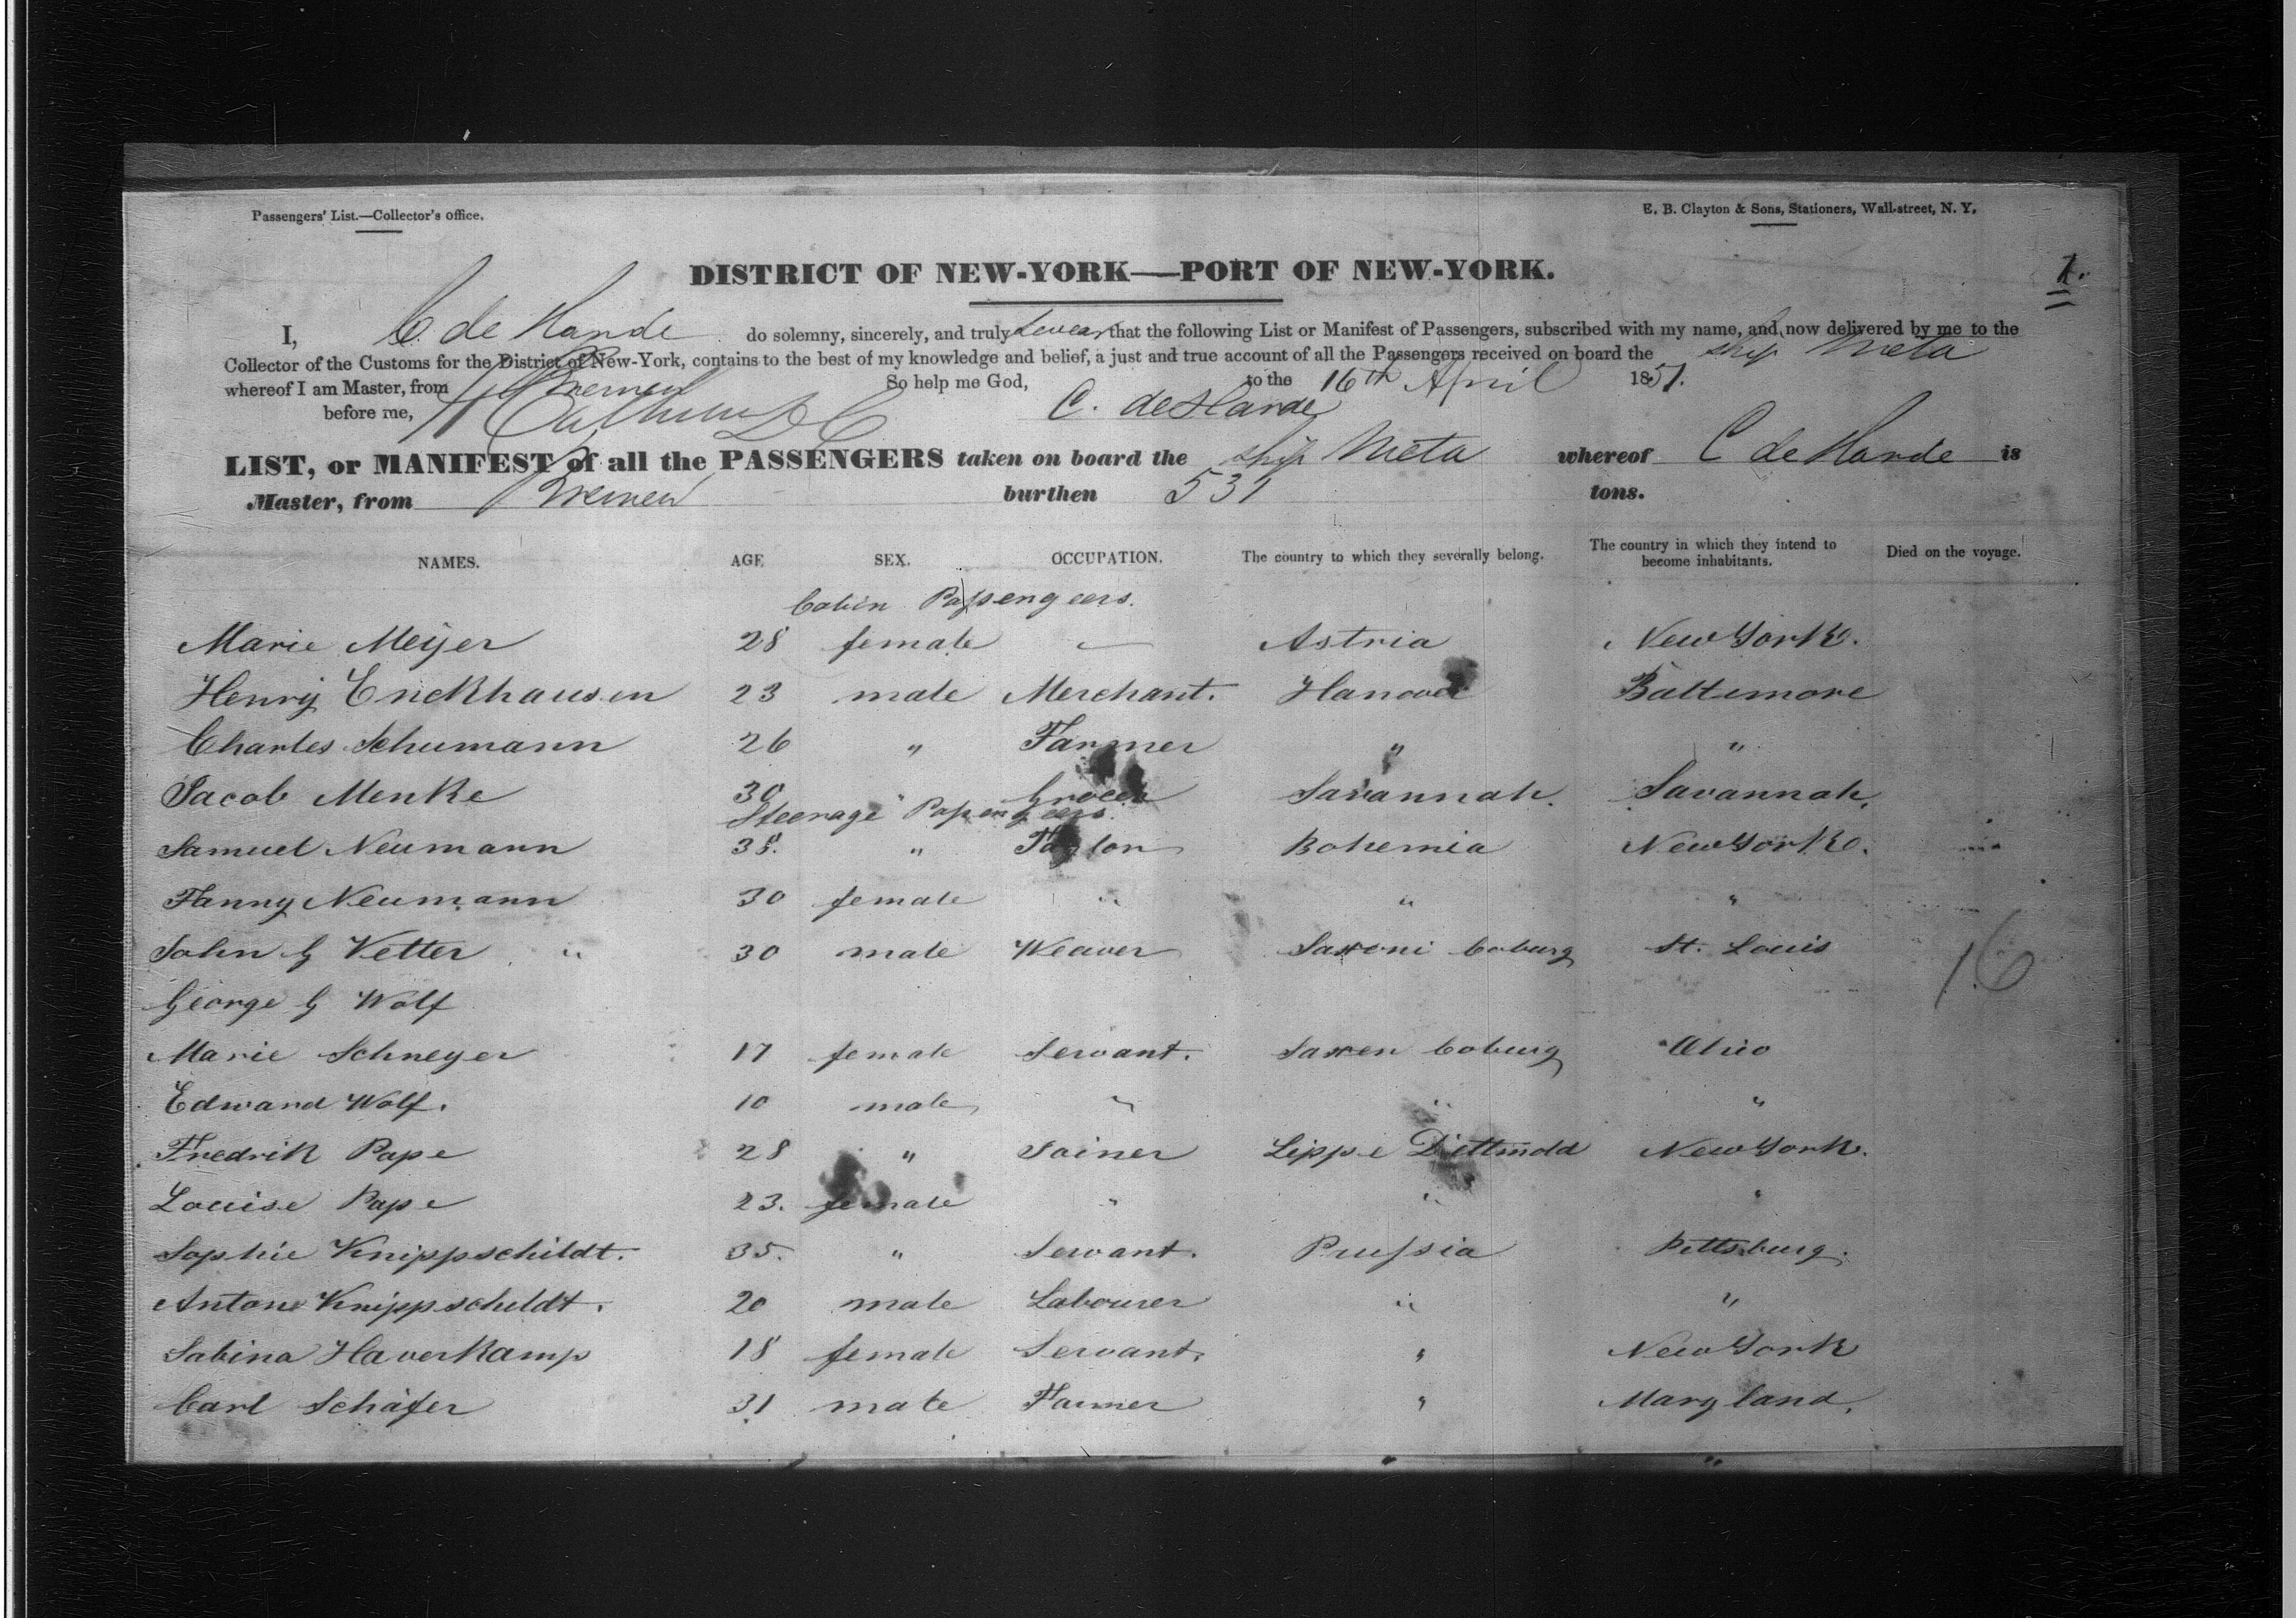 Passengers' List.—Collector's office.
E. B. Clayton & Sons, Stationers, Wall-street, N. Y.
DISTRICT OF NEW-YORK—PORT OF NEW-YORK.
1.
I, C. de Harde do solemny, sincerely, and truly swear that the following List or Manifest of Passengers, subscribed with my name, and now delivered by me to the
Collector of the Customs for the District of New-York, contains to the best of my knowledge and belief, a just and true account of all the Passengers received on board the ship Meta
whereof I am Master, from Bremen So help me God, to the 16th April 1851.
before me, C. de Harde
LIST, or MANIFEST of all the PASSENGERS taken on board the ship Meta whereof C de Harde is
Master, from Bremen burthen 531 tons.
NAMES. AGE SEX. OCCUPATION. The country to which they severally belong. The country in which they intend to become inhabitants. Died on the voyage.
Cabin Passengeers.
Marie Meijer 28 female — Astria New York.
Henry Enckhausen 23 male Merchant. Hanover Baltimore
Charles Schumann 26 " Farmer " "
Jacob Menke 30 " Grocer Savannah. Savannah.
Steerage Passengeers.
Samuel Neumann 38. " Taylor Bohemia New York.
Fanny Neumann 30 female " " "
John G Vetter " 30 male Weaver Saxoni Coburg St. Louis
George G Wolf
Marie Schneyer 17 female Servant. Saxen Coburg Ohio
Edward Wolf. 10 male " " "
Fredrik Pape 28 " Joiner Lippe Dettmold New York.
Louise Pape 23. female " " "
Sophie Knippschildt. 35. " Servant. Prussia Pittsburg.
Antone Knippschildt. 20 male Labourer " "
Sabina Haverkamp 18 female Servant. " New York
Carl Schäfer 31 male Farmer " Maryland.
16